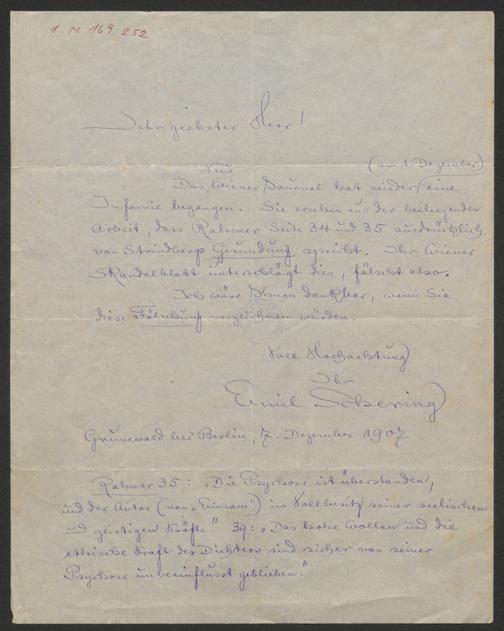 1. N. 169.252
Sehr geehrter Herr!
Neue (am 1. Dezember)
Das Wiener Journal hat wieder eine
Infamie begangen. Sie ersehen aus der beiliegenden
Arbeit, dass Rahmer Seite 34 und 35 ausdrücklich
von Strindbergs Gesundung spricht. Ihr Wiener
Skandalblatt unterschlägt dies, fälscht also.
Ich wäre Ihnen dankbar, wenn Sie
diese Fälschung verzeichnen würden.
Voll Hochachtung
Ihr
Emil Schering
Grunewald bei Berlin, 7. Dezember 1907
Rahmer 35: „Die Psychose ist überstanden,
und der Autor (von „Einsam") im Vollbesitz seiner seelischen
und geistigen Kräfte." 39: „Das hohe Wollen und die
ethische Kraft des Dichters sind sicher von seiner
Psychose unbeeinflusst geblieben."